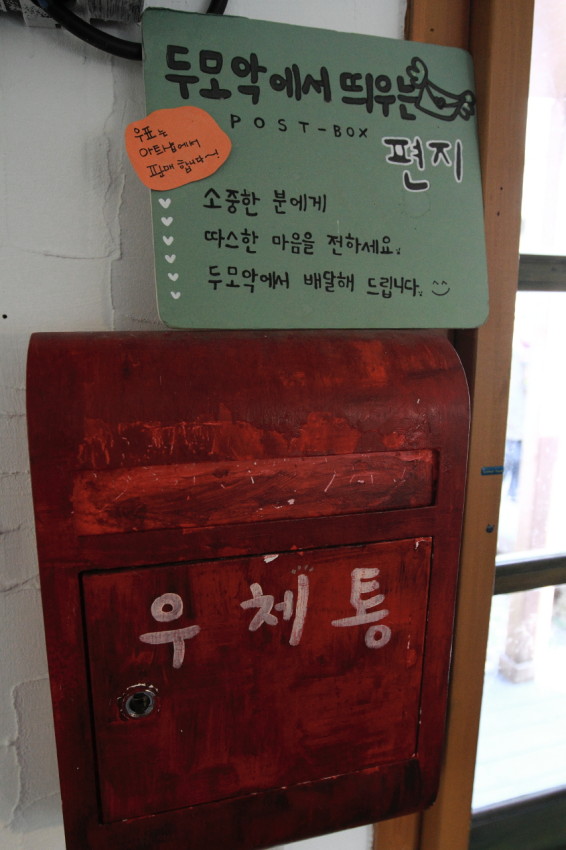 두모악에서 띄우는
POST-BOX
편지
우표는
아트샵에서
판매 합니다~!
소중한 분에게
따스한 마음을 전하세요.
두모악에서 배달해 드립니다.
우체통